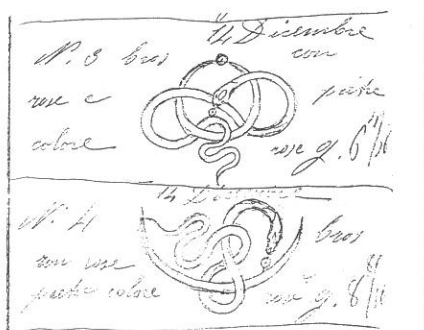 14 Dicembre
N. 3 bros con
rose e pietre
colore rose g. 6 11/16
14 Dicembre
N. 4 bros
con rose
pietre colore rose g. 8